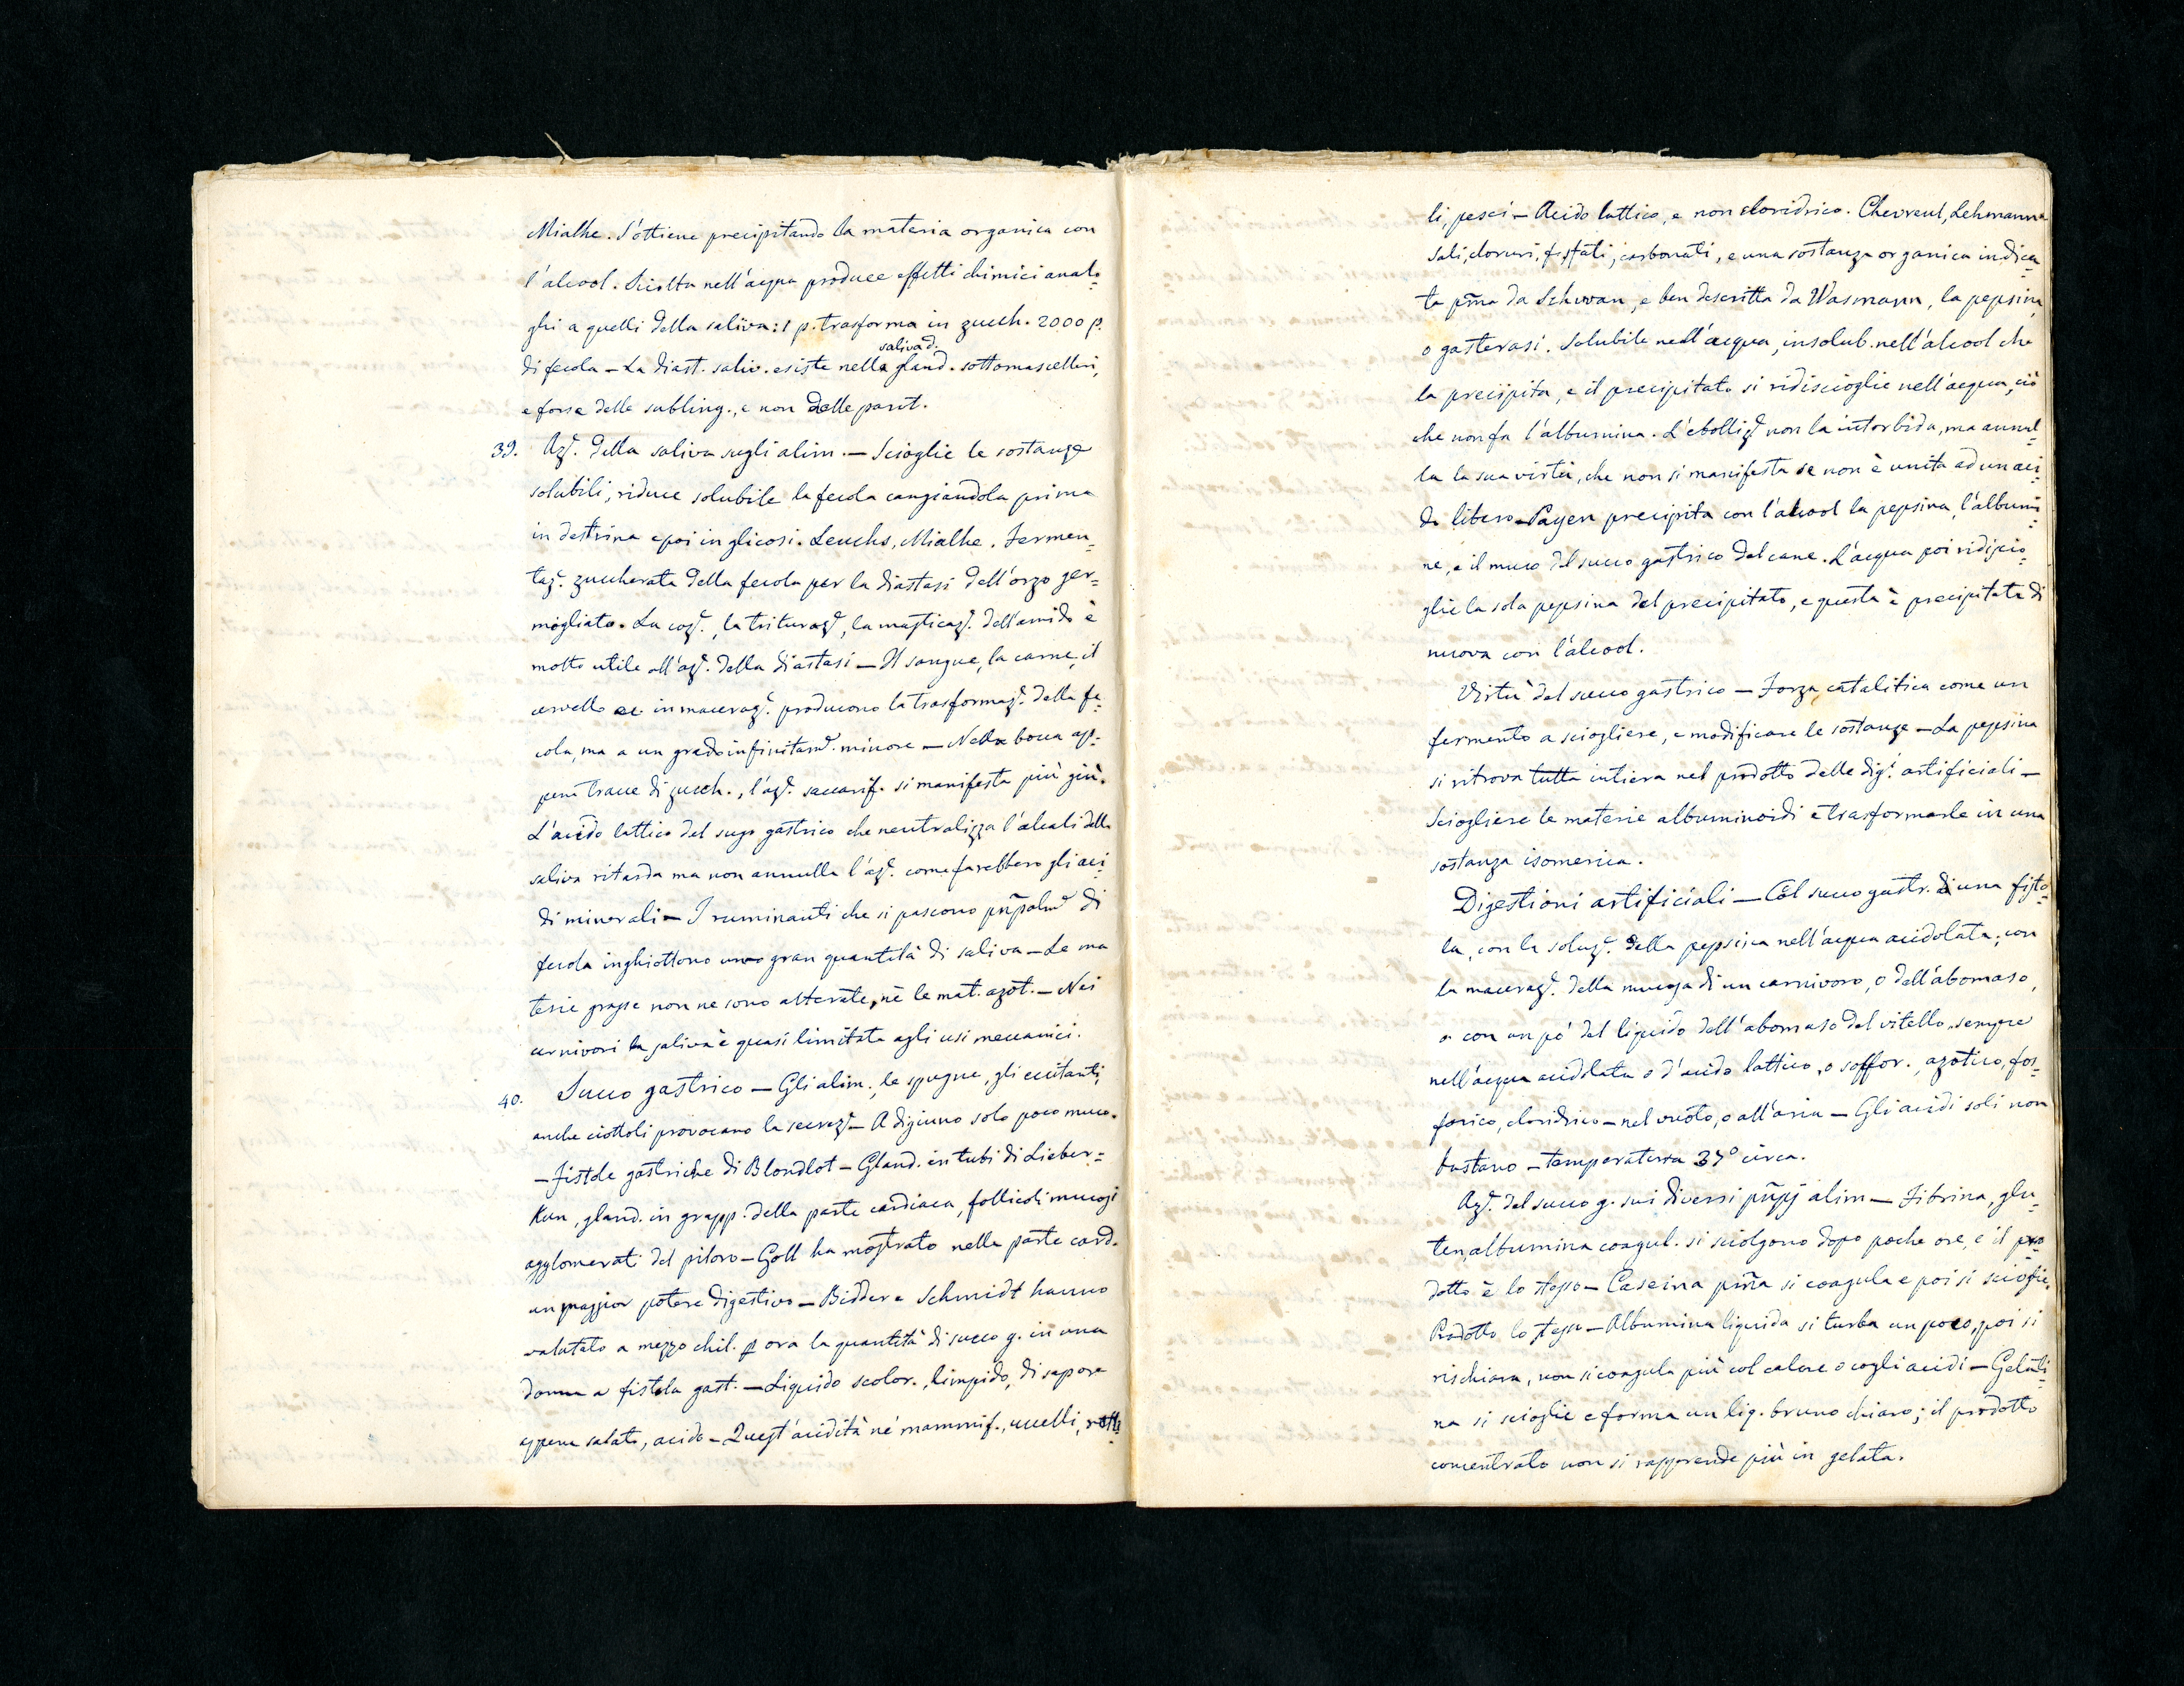 Mialhe. S'ottiene precipitando la materia organica con
l'alcool. Sciolta nell'acqua produce effetti chimici analo=
ghi a quelli della saliva: 1 p. trasforma in zucch. 2000 p.
saliva d.
di fecola — La diast. saliv. esiste nella gland. sottomascellari,
e forse delle subling., e non delle parot.
39. Azᵉ. della saliva sugli alim. — Scioglie le sostanze
solubili, riduce solubile la fecola cangiandola prima
in destrina e poi in glicosi. Leuchs, Mialhe. Fermen=
tazᵉ. zuccherata della fecola per la diastasi dell'orzo ger=
mogliato. La cozᵉ., la triturazᵉ, la masticazᵉ. dell'amido è
molto utile all'azᵉ. della diastasi — Il sangue, la carne, il
cervello ec in macerazᵉ. producono la trasformazᵉ. della fe=
cola, ma a un grado infinitamᵉ. minore — Nella bocca ap=
pena tracce di zucch., l'azᵉ. saccarif. si manifesta più giù.
L'acido lattico del sugo gastrico che neutralizza l'alcali della
saliva ritarda ma non annulla l'azᵉ. come farebbero gli aci=
di minerali — I ruminanti che si pascono pñpalmᵉ di
fecola inghiottono una gran quantità di saliva — Le ma
terie grasse non ne sono alterate, nè le mat. azot. — Nei
carnivori la saliva è quasi limitata agli usi meccanici.
40. Succo gastrico — Gli alim., le spugne, gli eccitanti,
anche ciottoli provocano la secrezᵉ — A digiuno solo poco muco.
— Fistole gastriche di Blondlot — Gland. in tubi di Lieber=
Kun, gland. in grapp. della parte cardiaca, follicoli mucosi
agglomerati del piloro — Goll ha mostrato nella parte card.
un maggior potere digestivo — Bidder e Schmidt hanno
valutato a mezzo chil. p ora la quantità di succo g. in una
donna a fistola gast. — Liquido scolor., limpido, di sapore
appena salato, acido — Quest'acidità ne' mammif., uccelli, retti=
li, pesci — Acido lattico, e non cloridrico. Chevreul, Lehmann
Sali, cloruri, fosfati, carbonati, e una sostanza organica indica=
ta pm̃a da Schwan, e ben descritta da Wasmann, la pepsina,
o gasterasi. Solubile nell'acqua, insolub. nell'alcool che
la precipita, e il precipitato si ridiscioglie nell'acqua, ciò
che non fa l'albumina. L'ebollizᵉ non la intorbida, ma annul=
la la sua virtù, che non si manifesta se non è unita ad un aci=
do libero — Payen precipita con l'alcool la pepsina, l'albumi=
ne, e il muco del succo gastrico del cane. L'acqua poi ridiscio=
glie la sola pepsina del precipitato, e questa è precipitata di
nuovo con l'alcool.
Virtù del succo gastrico — Forza catalitica come un
fermento a sciogliere, e modificare le sostanze — La pepsina
si ritrova tutta intiera nel prodotto delle digᵉ. artificiali —
Sciogliere le materie albuminoidi e trasformarle in una
sostanza isomerica.
Digestioni artificiali — Col succo gastr. di una fisto=
la, con la soluzᵉ. della pepsina nell'acqua acidolata; con
la macerazᵉ. della mucosa di un carnivoro, o dell'abomaso,
o con un pò del liquido dell'abomaso del vitello, sempre
nell'acqua acidolata o d'acido lattico, o solfor., azotico, fos=
forico, cloridrico — nel vuoto, o all'aria — Gli acidi soli non
bastano — temperatura 37° circa.
Azᵉ. del succo g. sui diversi pñpj alim — Fibrina, glu=
ten, albumina coagul. si sciolgono dopo poche ore, e il pro
dotto è lo stesso — Caseina pm̃a si coagula e poi si scioglie.
Prodotto lo stesso — Albumina liquida si turba un poco, poi si
rischiara, non si coagula più col calore o cogli acidi — Gelati=
na si scioglie e forma un liq. bruno chiaro; il prodotto
concentrato non si rapprende più in gelata.